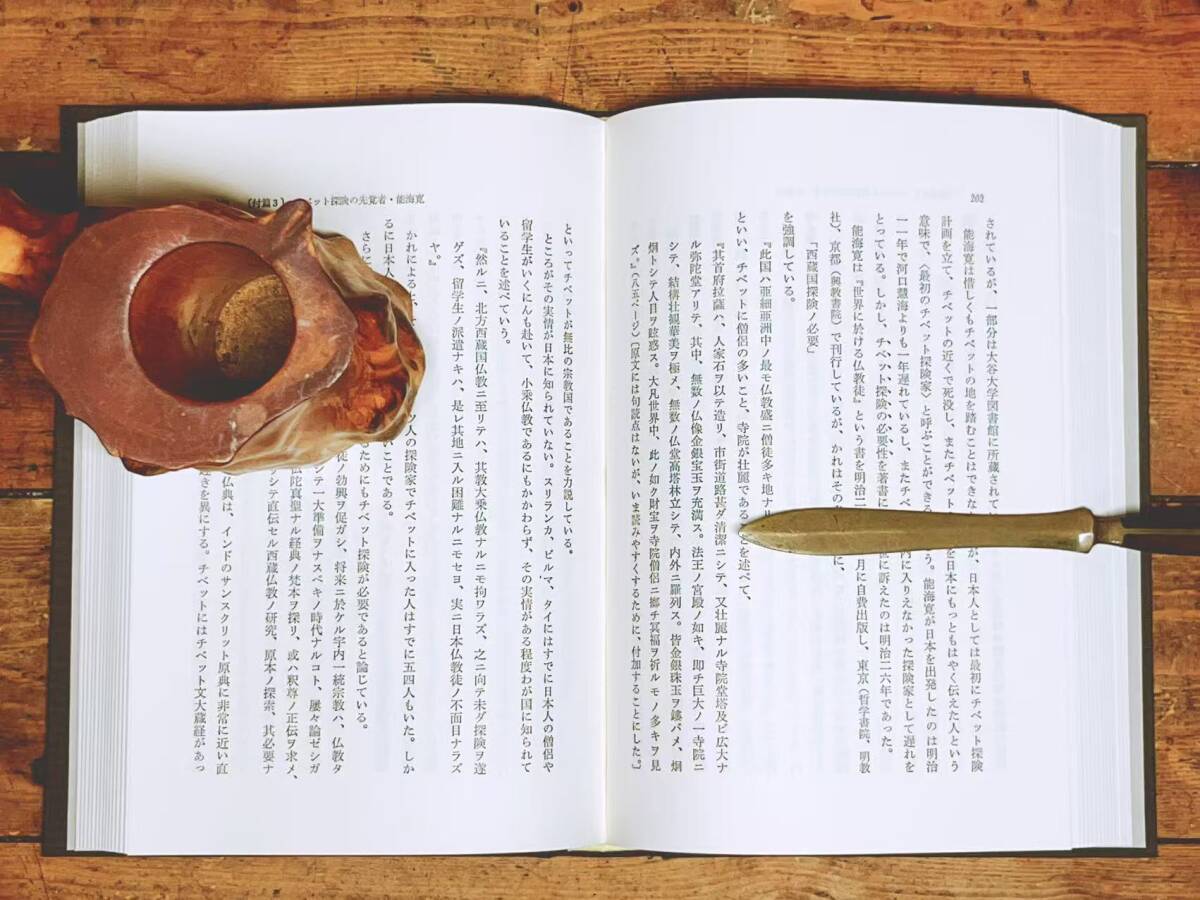 202
されているが、一部分は大谷大学図書館に所蔵されて
能海寛は惜しくもチベットの地を踏むことはできな が、日本人としては最初にチベット探険
計画を立て、チベットの近くで死没し、またチベット を日本にもっともはやく伝えた人という
意味で、〈最初のチベット探険家〉と呼ぶことができる う。能海寛が日本を出発したのは明治
一一年で河口慧海よりも一年遅れているし、またチベ 内に入りえなかった探険家として遅れを
とっている。しかし、チベット探険の必要性を著書に 世に訴えたのは明治二六年であった。
能海寛は『世界に於ける仏教徒』という書を明治二 月に自費出版し、東京（哲学書院、明教
社）、京都（興教書院）で刊行しているが、かれはその に、
「西蔵国探険ノ必要」
を強調している。
『此国ハ亜細亜洲中ノ最モ仏教盛ニ僧徒多キ地ナ
といい、チベットに僧侶の多いこと、寺院が壮麗である とを述べて、
『其首府拉薩ハ、人家石ヲ以テ造リ、市街道路甚ダ清潔ニシテ、又壮麗ナル寺院堂塔及ビ広大ナ
ル弥陀堂アリテ、其中、無数ノ仏像金銀宝玉ヲ充満ス。法王ノ宮殿ノ如キ、即チ巨大ノ一寺院ニ
シテ、結構壮観華美ヲ極メ、無数ノ仏堂高塔林立シテ、内外ニ羅列ス。皆金銀珠玉ヲ鏤バメ、炳
烟トシテ人目ヲ眩惑ス。大凡世界中、此ノ如ク財宝ヲ寺院僧侶ニ郷チ冥福ヲ祈ルモノ多キヲ見
ズ。』（八五ページ）〔原文には句読点はないが、いま読みやすくするために、付加することにした。〕
〔付篇3〕 ベット探険の先覚者・能海寛
といってチベットが無比の宗教国であることを力説している。
ところがその実情が日本に知られていない。スリランカ、ビルマ、タイにはすでに日本人の僧侶や
留学生がいくにんも赴いて、小乗仏教であるにもかかわらず、その実情がある程度わが国に知られて
いることを述べていう。
『然ルニ、北方西蔵国仏教ニ至リテハ、其教大乗仏教ナルニモ拘ワラズ、之ニ向テ未ダ探険ヲ遂
ゲズ、留学生ノ派遣ナキハ、是レ其地ニ入ル困難ナルニモセヨ、実ニ日本仏教徒ノ不面目ナラズ
ヤ。』
かれによると、 人の探険家でチベットに入った人はすでに五四人もいた。しか
るに日本人 いことである。
さらに ためにもチベット探険が必要であると論じている。
徒ノ勃興ヲ促ガシ、将来ニ於ケル宇内一統宗教ハ、仏教タ
シテ一大準備ヲナスベキノ時代ナルコト、屢々論ゼシガ
陀真聖ナル経典ノ梵本ヲ探リ、或ハ釈尊ノ正伝ヲ求メ、
シテ直伝セル西蔵仏教ノ研究、原本ノ探索、其必要ナ
仏典は、インドのサンスクリット原典に非常に近い直
きを異にする。チベットにはチベット文大蔵経があっ